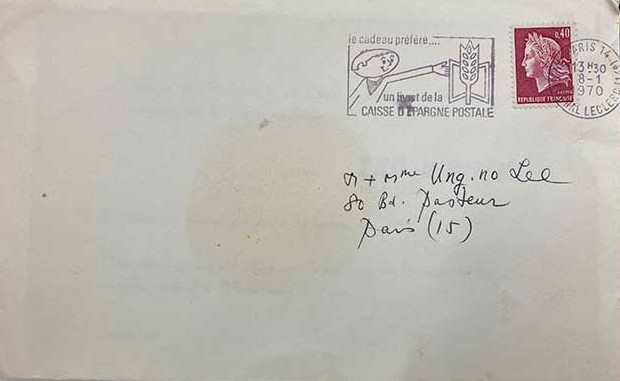 le cadeau préféré....
un livret de la
CAISSE D'ÉPARGNE POSTALE
0,40
REPUBLIQUE FRANÇAISE
PARIS 14
13H30
8-1
1970
LECLERC
M + Mme Ung. no Lee
80 Bd. Pasteur
Paris (15)